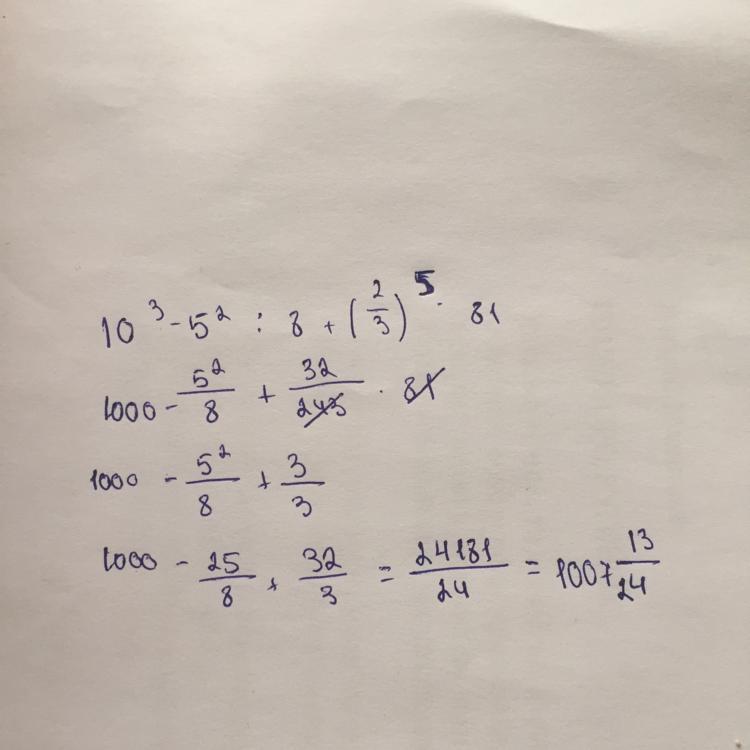 10³ - 5² : 8 + (2/3)⁵ · 81
1000 - 5²/8 + 32/243 · 81
1000 - 5²/8 + 3/3
1000 - 25/8 + 32/3 = 24181/24 = 1007 13/24